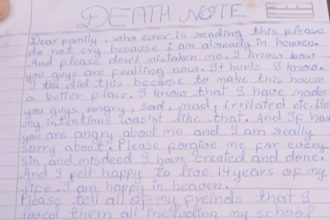 DEATH NOTE
Dear family, who ever is reading this please
do not cry because I am already in heaven.
And please don't mistaken me. I know how
you guys are feelling now. It hurts I know.
I thi did this because to make this house
a better place. I know that I have made
you guys angry, sad, mad, irritated etc. But
my intentions was'nt like that. And If
you are angry about me and I am really
sorry about. Please forgive me for every
sin and misdeed I have created and done.
And I felt happy to live 14years of my
life. I am happy in heaven.
Please tell all of my freinds that I
loved them all including my school